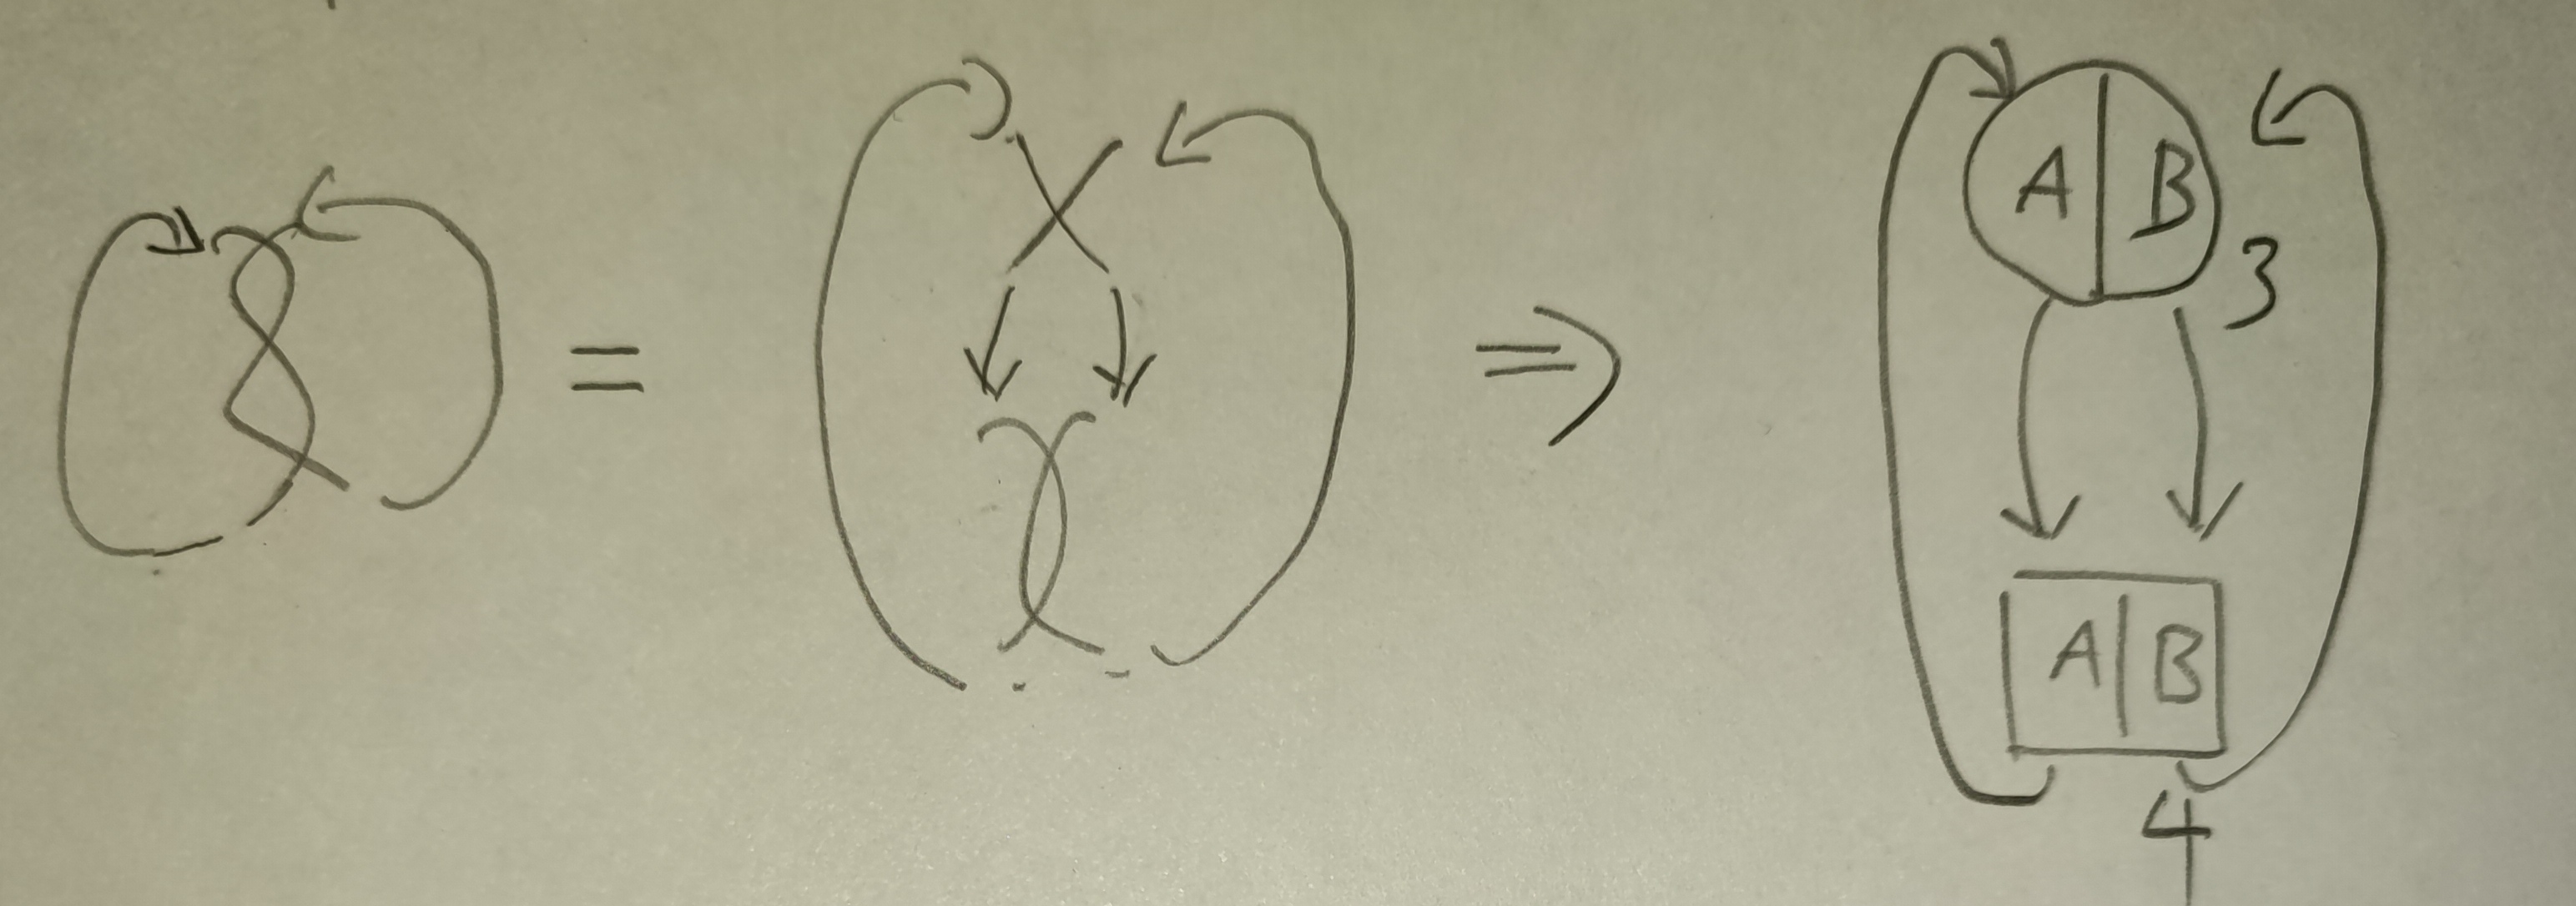 =
⇒
A | B
3
A | B
4